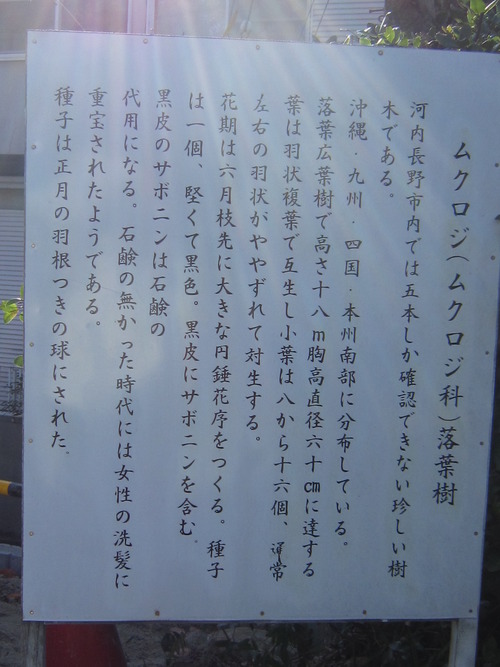 ムクロジ(ムクロジ科)落葉樹
河内長野市内では五本しか確認できない珍しい樹
木である。
沖縄・九州・四国・本州南部に分布している。
落葉広葉樹で高さ十八m胸高直径六十cmに達する
葉は羽状複葉で互生し小葉は八から十六個、通常
左右の羽状がややずれて対生する。
花期は六月枝先に大きな円錘花序をつくる。種子
は一個、堅くて黒色。黒皮にサボニンを含む。
黒皮のサボニンは石鹸の
代用になる。石鹸の無かった時代には女性の洗髪に
重宝されたようである。
種子は正月の羽根つきの球にされた.